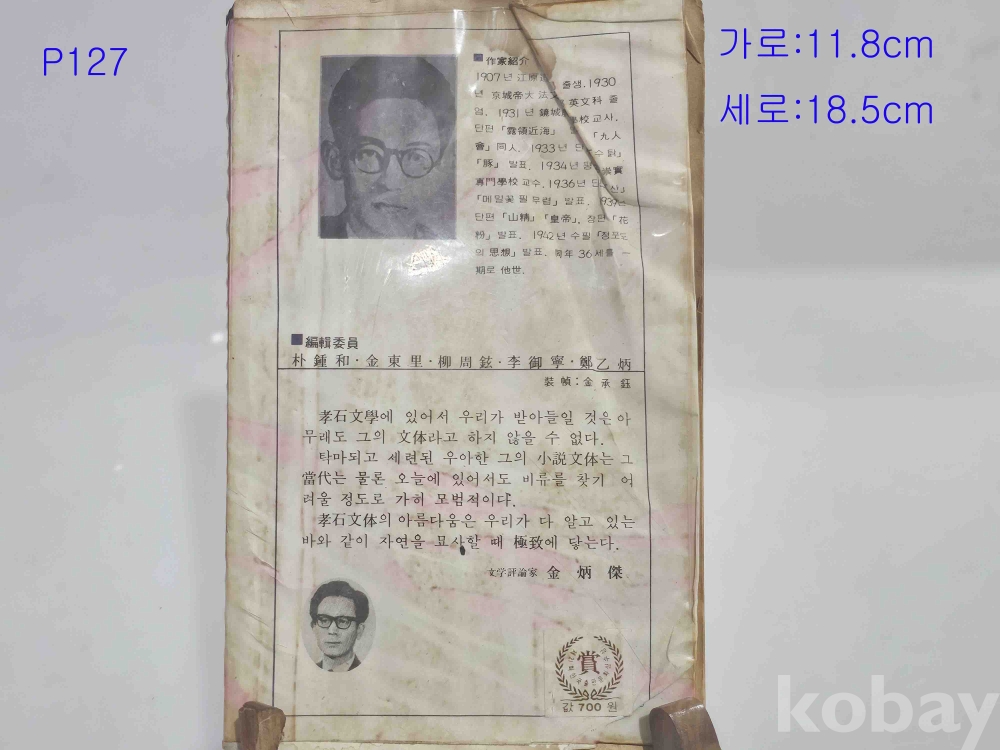 P127
가로:11.8cm
세로:18.5cm
■作家紹介
1907년 江原 출생. 1930
년 京城帝大 法文 英文科 졸
업. 1931년 鏡城 學校 교사.
단편「露領近海」 「九人
會」同人. 1933년 단 수탉」
「豚」 발표. 1934년 崇實
專門學校 교수. 1936년 단 산」
「메밀꽃 필 무렵」 발표. 1939년
단편「山精」「皇帝」, 장편「花
粉」 발표. 1942년 수필
의 思想」 발표. 同年 36세를 一
期로 他世.
■編輯委員
朴鍾和·金東里·柳周鉉·李御寧·鄭乙炳
裝幀:金承鈺
孝石文學에 있어서 우리가 받아들일 것은 아
무래도 그의 文体라고 하지 않을 수 없다.
탁마되고 세련된 우아한 그의 小說文体는 그
當代는 물론 오늘에 있어서도 비류를 찾기 어
려울 정도로 가히 모범적이다.
孝石文体의 아름다움은 우리가 다 알고 있는
바와 같이 자연을 묘사할 때 極致에 닿는다.
文学評論家 金炳傑
賞
값 700 원
kobay